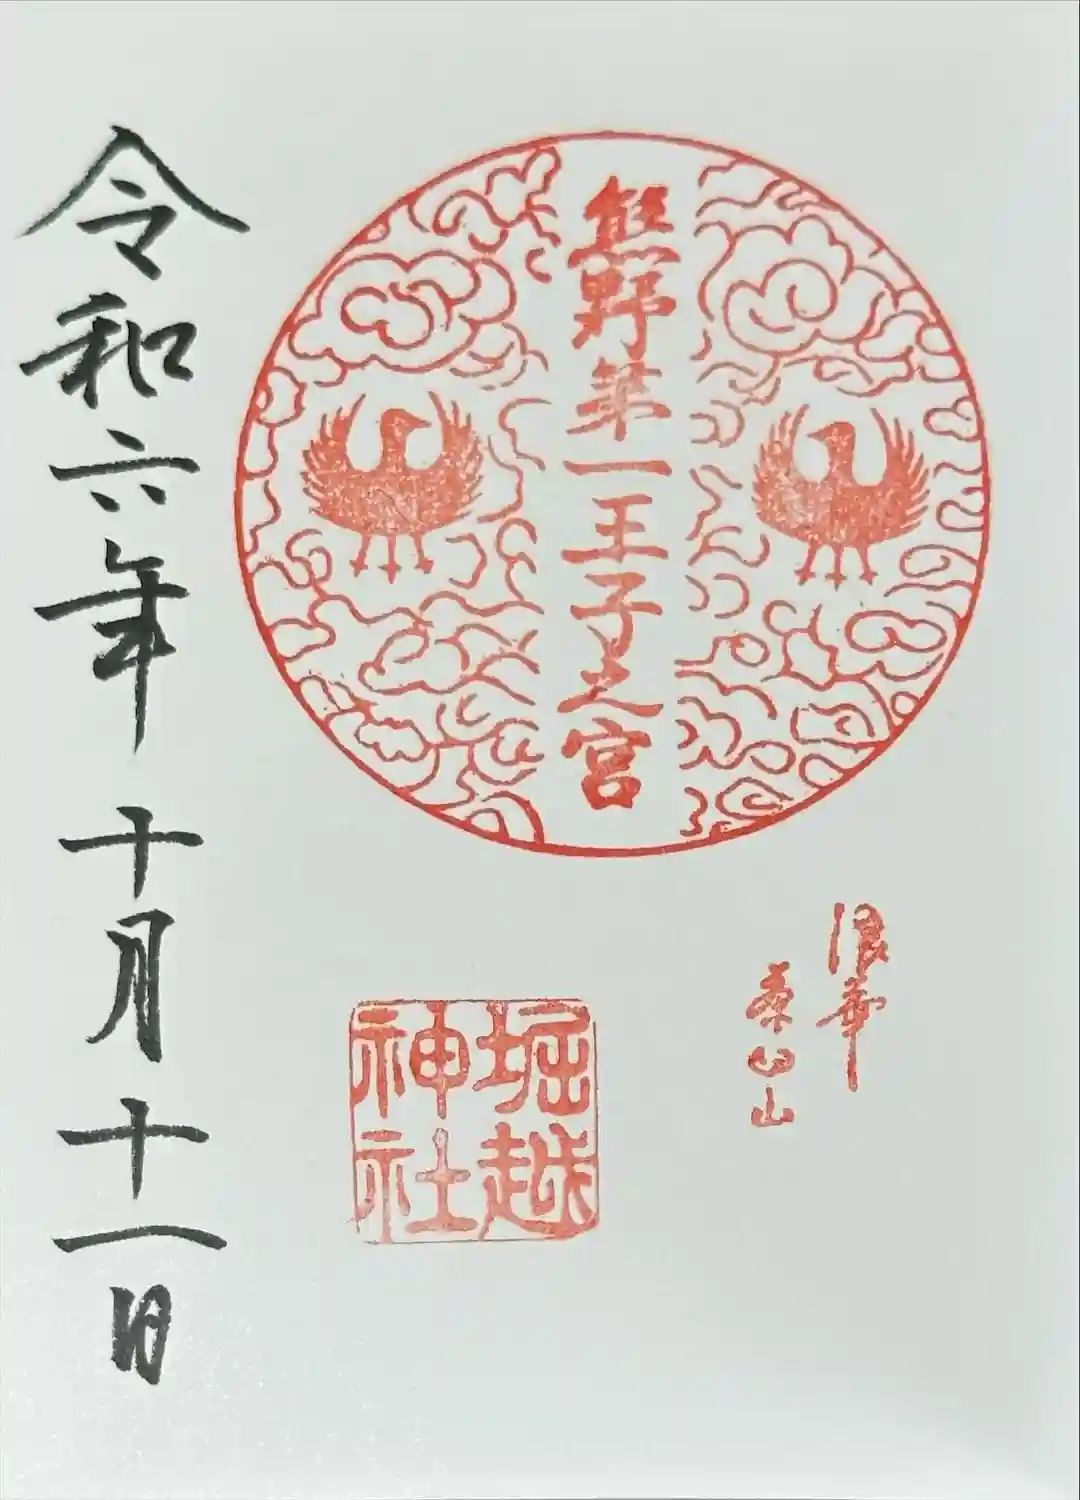 浪華
茶臼山
熊野第一王子之宮
堀越
神社
令和六年十月十一日